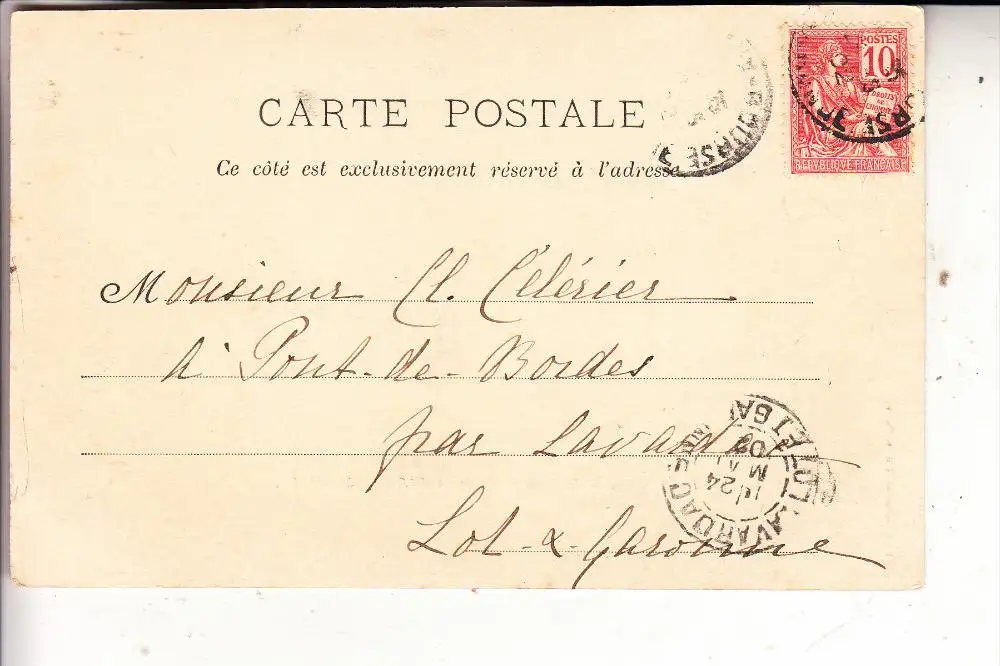 CARTE POSTALE
Ce côté est exclusivement réservé à l'adresse
POSTES
10
DROITS DE L'HOMME
REPUBLIQUE FRANÇAISE
BOURSE
Monsieur Cl. Célérier
à Pont-de-Bordes
par Lavardac
Lot-&-Garonne
LAVARDAC
24
MAI
02
LOT-ET-GAR